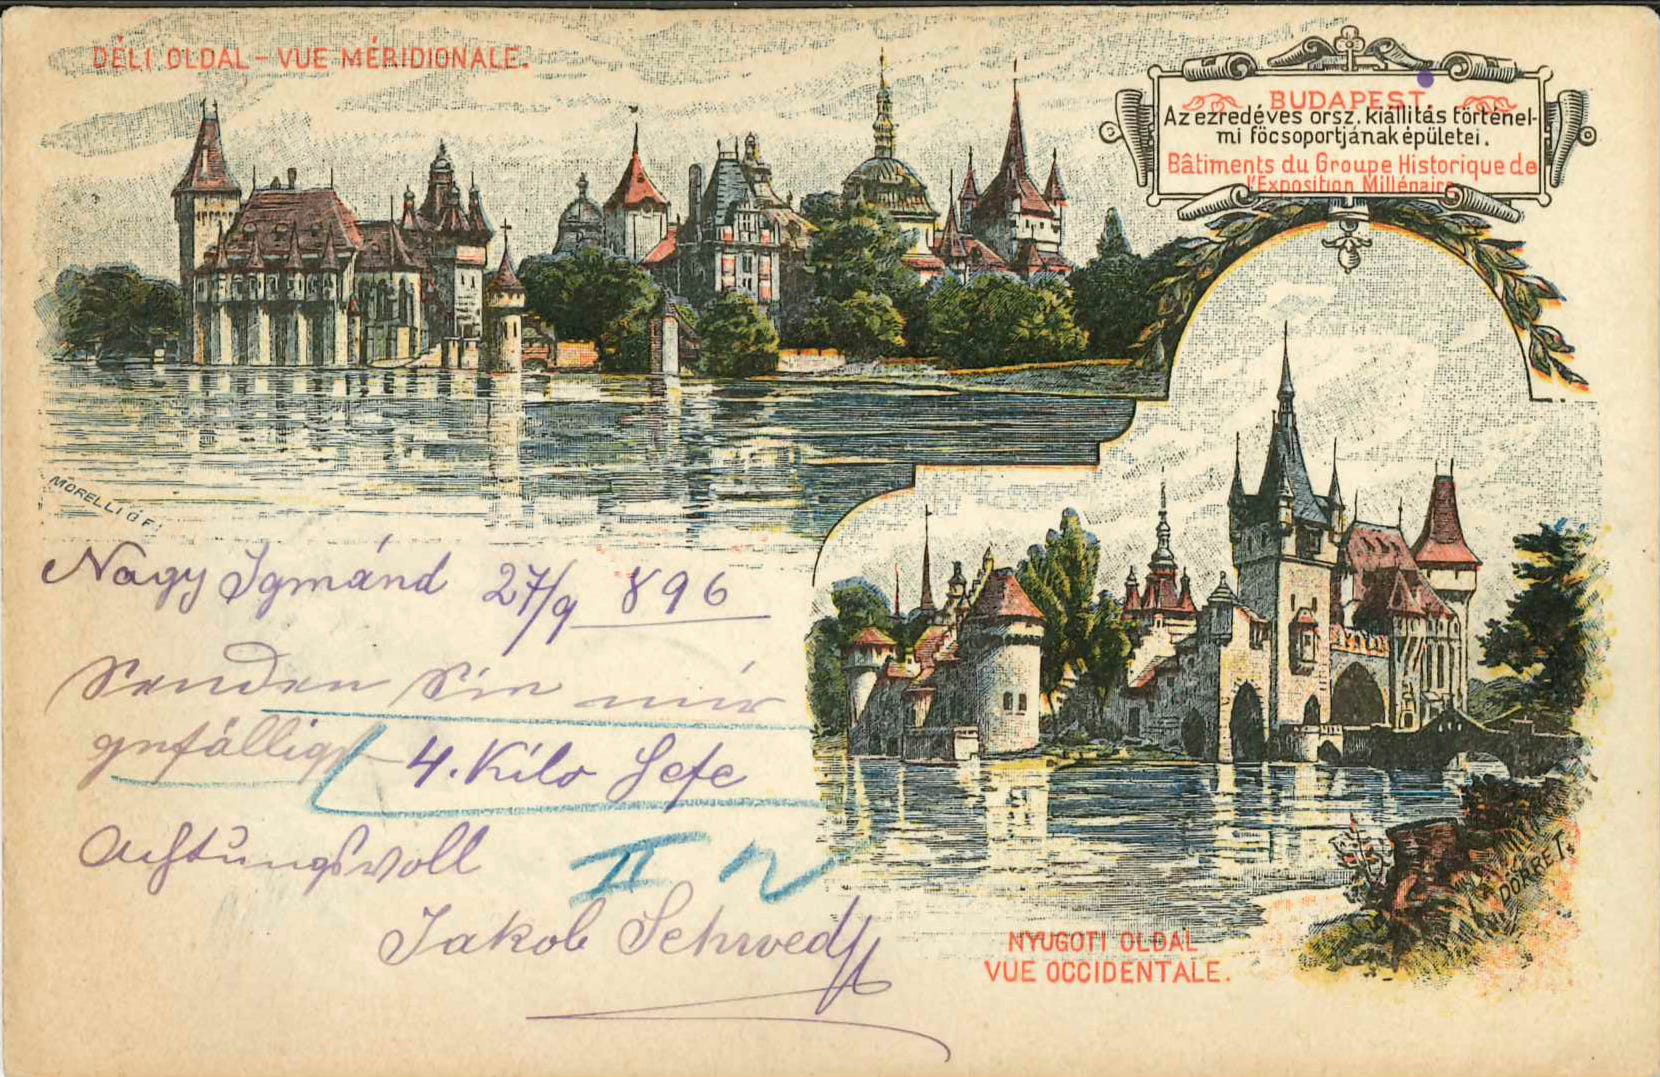 DÉLI OLDAL – VUE MÉRIDIONALE.
BUDAPEST.
Az ezredéves orsz. kiállitás történel-
mi föcsoportjának épületei.
Bâtiments du Groupe Historique de
l'Exposition Millénaire
MORELLI G F.
Nagy Igmánd 27/9 896
Senden Sie mir
gefälligst 4. Kilo Hefe
Achtungsvoll
II
Jakob
DÖRRE T.
NYUGOTI OLDAL
VUE OCCIDENTALE.